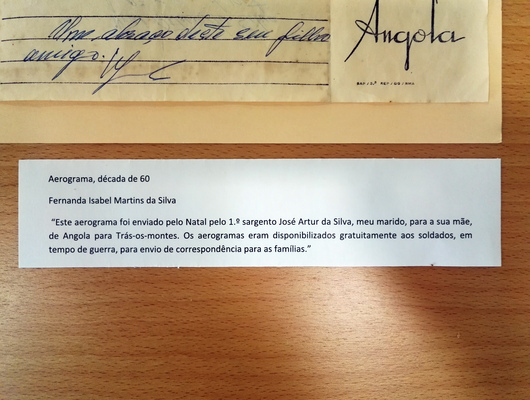 Um abraço deste seu filho
amigo.
Angola
Aerograma, década de 60
Fernanda Isabel Martins da Silva
“Este aerograma foi enviado pelo Natal pelo 1.º sargento José Artur da Silva, meu marido, para a sua mãe,
de Angola para Trás-os-montes. Os aerogramas eram disponibilizados gratuitamente aos soldados, em
tempo de guerra, para envio de correspondência para as famílias.”